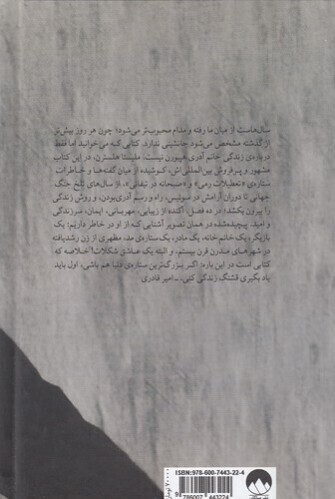 سال‌هاست از میان ما رفته و مدام محبوب‌تر می‌شود؛ چون هر روز بیش‌تر
از گذشته مشخص می‌شود جانشینی ندارد. کتابی که می‌خوانید اما فقط
درباره‌ی زندگی خانم آدری هپبورن نیست. ملیسا هلسترن، در این کتاب
مشهور و پرفروش بین‌المللی‌اش، کوشیده از میان گفته‌ها و خاطرات
ستاره‌ی «تعطیلات رمی» و «صبحانه در تیفانی»، از سال‌های تلخ جنگ
جهانی تا دوران آرامش در سوئیس، راه و رسم آدری‌بودن، و روش زندگی
را بیرون بکشد؛ در ده فصل، آکنده از زیبایی، مهربانی، ایمان، سرزندگی
و امید. پیچیده‌شده در همان تصویر آشنایی که از او در خاطر داریم: یک
بازیگر، یک خانم خانه، یک مادر، یک ستاره‌ی مد، مظهری از زن رشدیافته
در شهرهای مدرن قرن بیستم، و البته یک عاشق شکلات! خلاصه که
کتابی است در این باره: اگر بزرگ‌ترین ستاره‌ی دنیا هم باشی، اول باید
یاد بگیری قشنگ زندگی کنی. ـ امیر قادری
ISBN: 978-600-7443-22-4
9 786007 443224